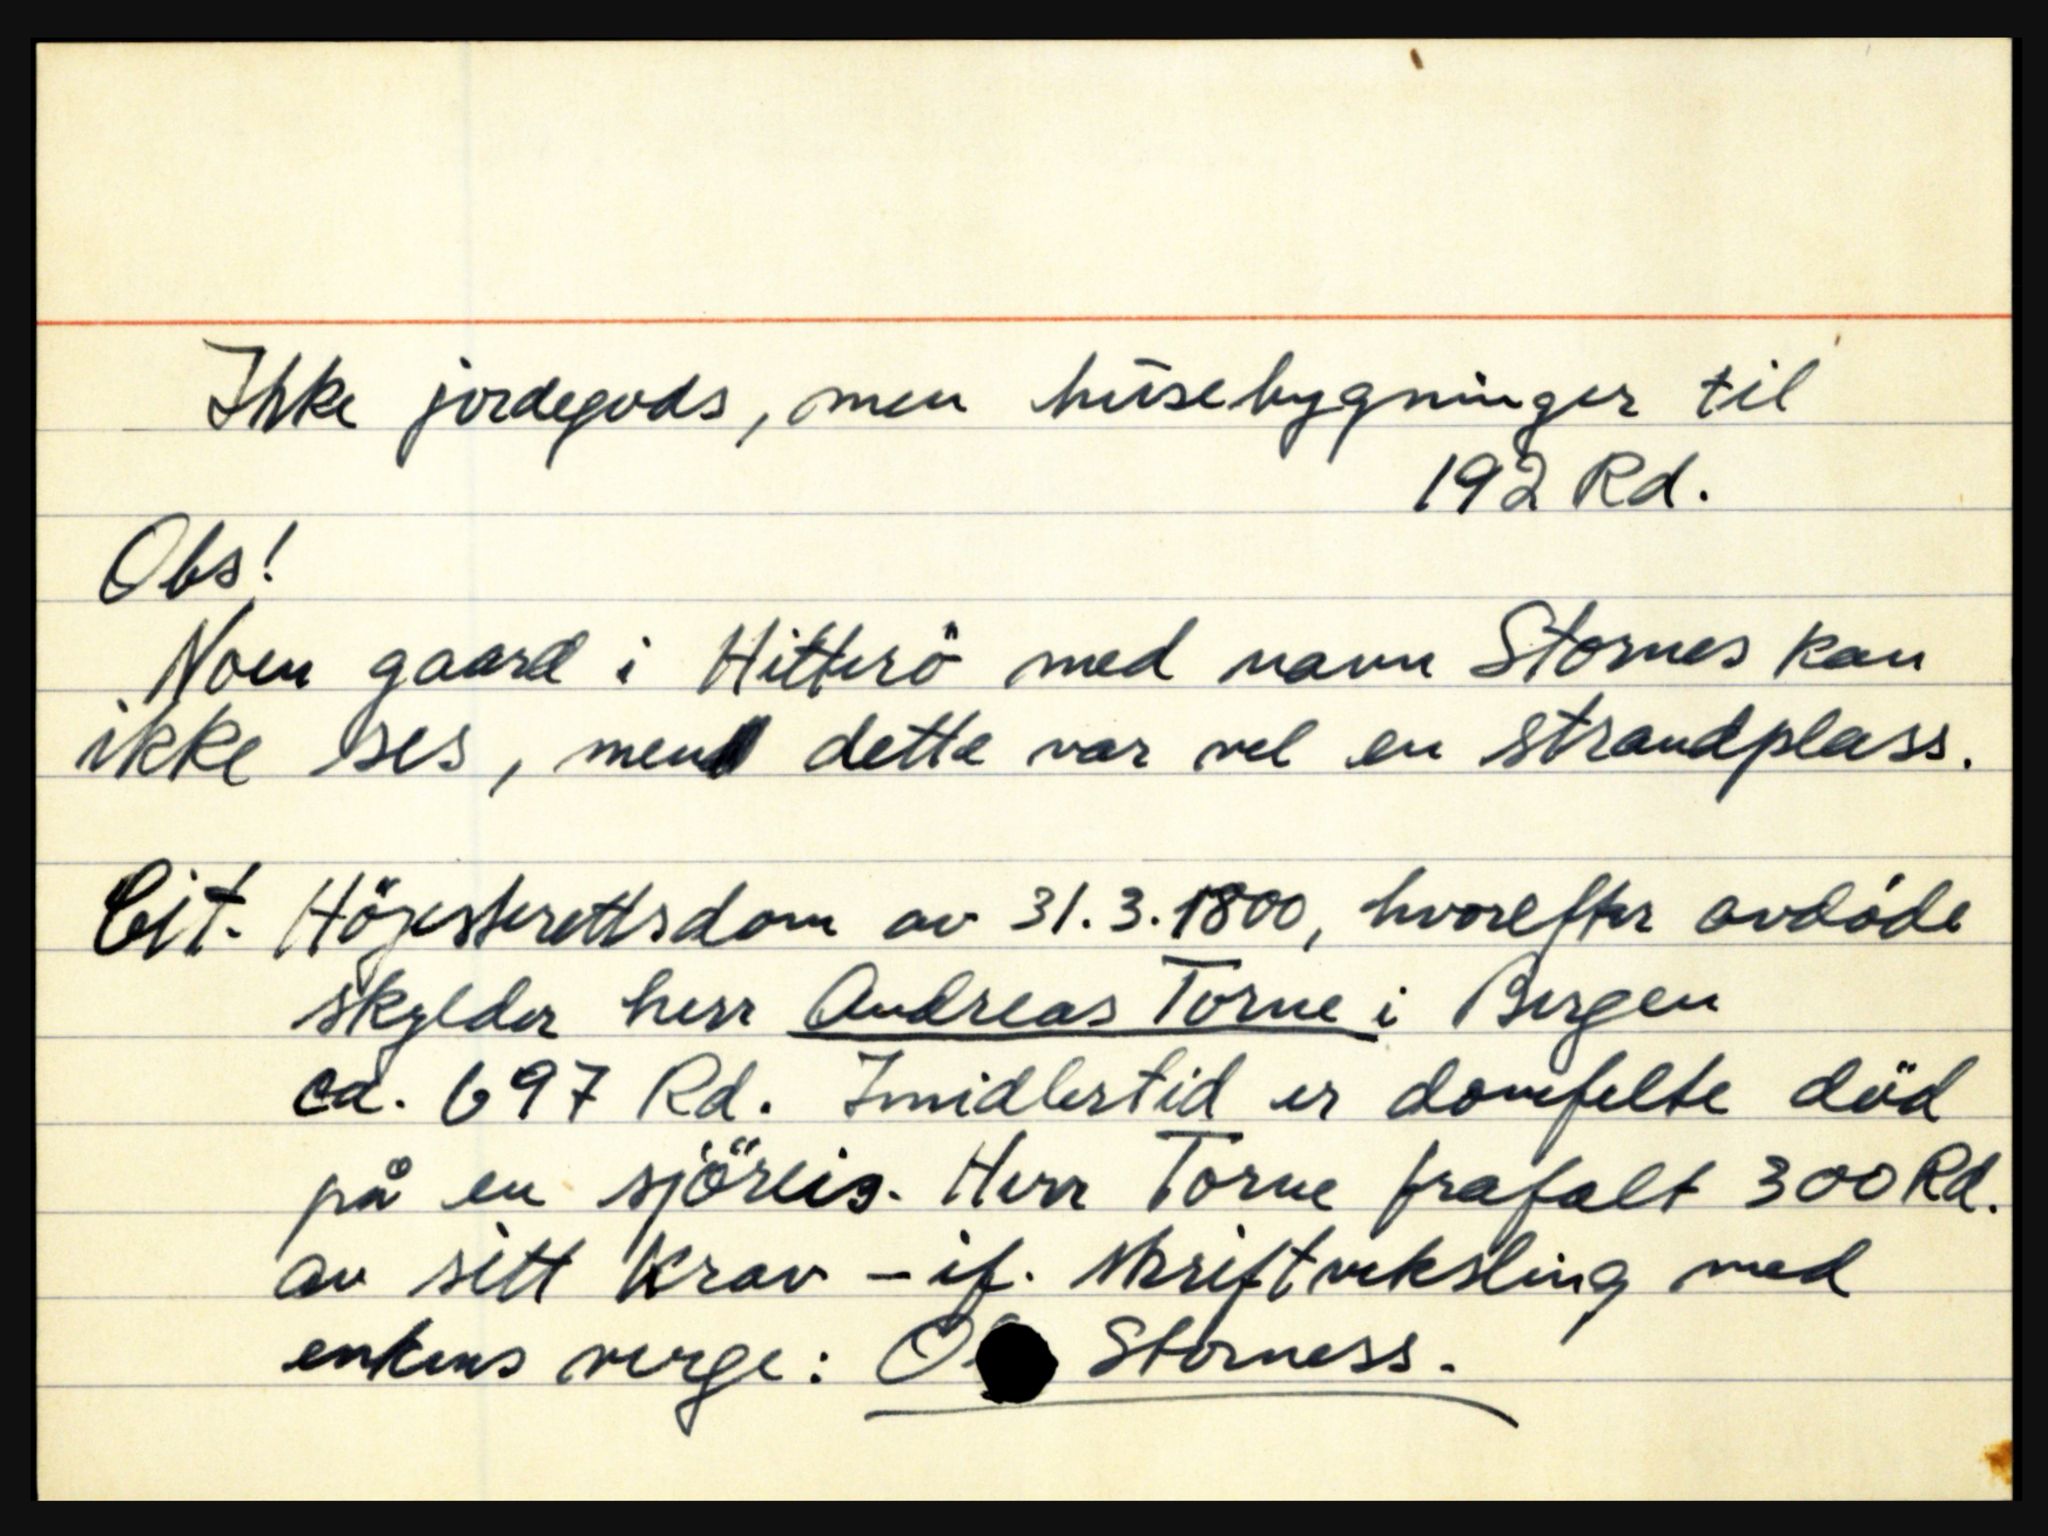 Ikke jordegods, men husebygninger til
192 Rd.
Obs!
Noen gaard i Hitterö med navn Stornes kan
ikke ses, men dette var vel en strandplass.
Cit. Höjesterettsdom av 31.3.1800, hvorefter avdöde
skylder herr Andreas Torne i Bergen
ca. 697 Rd. Imidlertid er domfelte död
på en sjöreis. Herr Torne frafalt 300 Rd.
av sitt krav – if. skriftveksling med
enkens verge: Storness.